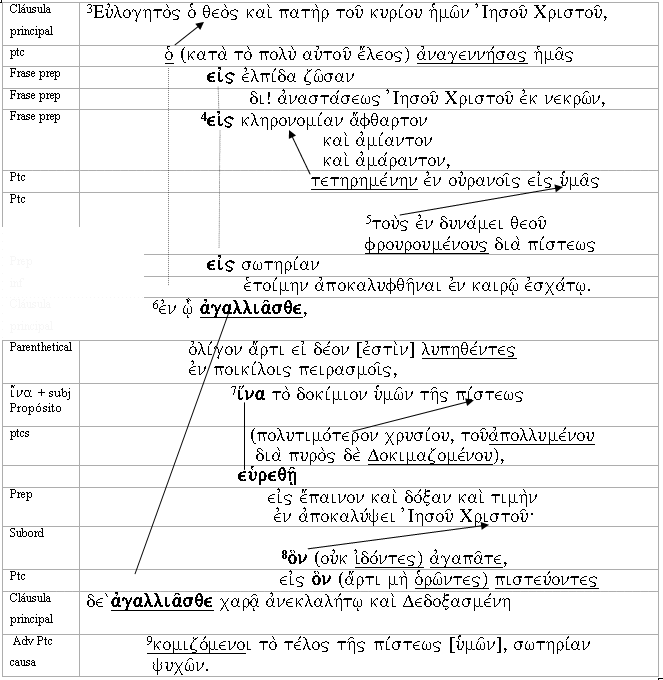 Cláusula
principal
³Εὐλογητὸς ὁ θεὸς καὶ πατὴρ τοῦ κυρίου ἡμῶν Ἰησοῦ Χριστοῦ,
ptc
ὁ (κατὰ τὸ πολὺ αὐτοῦ ἔλεος) ἀναγεννήσας ἡμᾶς
Frase prep
εἰς ἐλπίδα ζῶσαν
Frase prep
δι! ἀναστάσεως Ἰησοῦ Χριστοῦ ἐκ νεκρῶν,
Frase prep
⁴εἰς κληρονομίαν ἄφθαρτον
καὶ ἀμίαντον
καὶ ἀμάραντον,
Ptc
τετηρημένην ἐν οὐρανοῖς εἰς ὑμᾶς
Ptc
⁵τοὺς ἐν δυνάμει θεοῦ
φρουρουμένους διὰ πίστεως
Prep
εἰς σωτηρίαν
inf
ἑτοίμην ἀποκαλυφθῆναι ἐν καιρῷ ἐσχάτῳ.
Cláusula
principal
⁶ἐν ᾧ ἀγαλλιᾶσθε,
Parenthetical
ὀλίγον ἄρτι εἰ δέον [ἐστὶν] λυπηθέντες
ἐν ποικίλοις πειρασμοῖς,
ἵνα + subj
Propósito
⁷ἵνα τὸ δοκίμιον ὑμῶν τῆς πίστεως
ptcs
(πολυτιμότερον χρυσίου, τοῦἀπολλυμένου
διὰ πυρὸς δὲ Δοκιμαζομένου),
εὑρεθῇ
Prep
εἰς ἔπαινον καὶ δόξαν καὶ τιμὴν
ἐν ἀποκαλύψει Ἰησοῦ Χριστοῦ·
Subord
⁸ὃν (οὐκ ἰδόντες) ἀγαπᾶτε,
Ptc
εἰς ὃν (ἄρτι μὴ ὁρῶντες) πιστεύοντες
Cláusula
principal
δε` ἀγαλλιᾶσθε χαρᾷ ἀνεκλαλήτῳ καὶ Δεδοξασμένῃ
Adv Ptc
causa
⁹κομιζόμενοι τὸ τέλος τῆς πίστεως [ὑμῶν], σωτηρίαν
ψυχῶν.